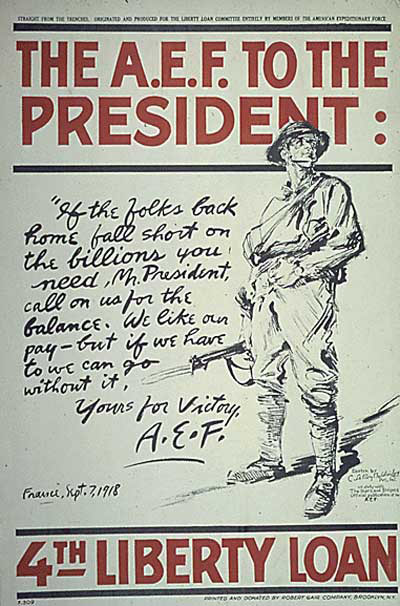 STRAIGHT FROM THE TRENCHES. ORIGINATED AND PRODUCED FOR THE LIBERTY LOAN COMMITTEE ENTIRELY BY MEMBERS OF THE AMERICAN EXPEDITIONARY FORCE
THE A.E.F. TO THE
PRESIDENT:
"If the folks back
home fall short on
the billions you
need, Mr. President,
call on us for the
balance. We like our
pay – but if we have
to we can go
without it,
Yours for Victory,
A.E.F.
France, Sept. 7, 1918
Sketch by
on duty with
The Stars and Stripes
Official publication of the
A.E.F.
4TH LIBERTY LOAN
PRINTED AND DONATED BY ROBERT GAIR COMPANY, BROOKLYN, N.Y.